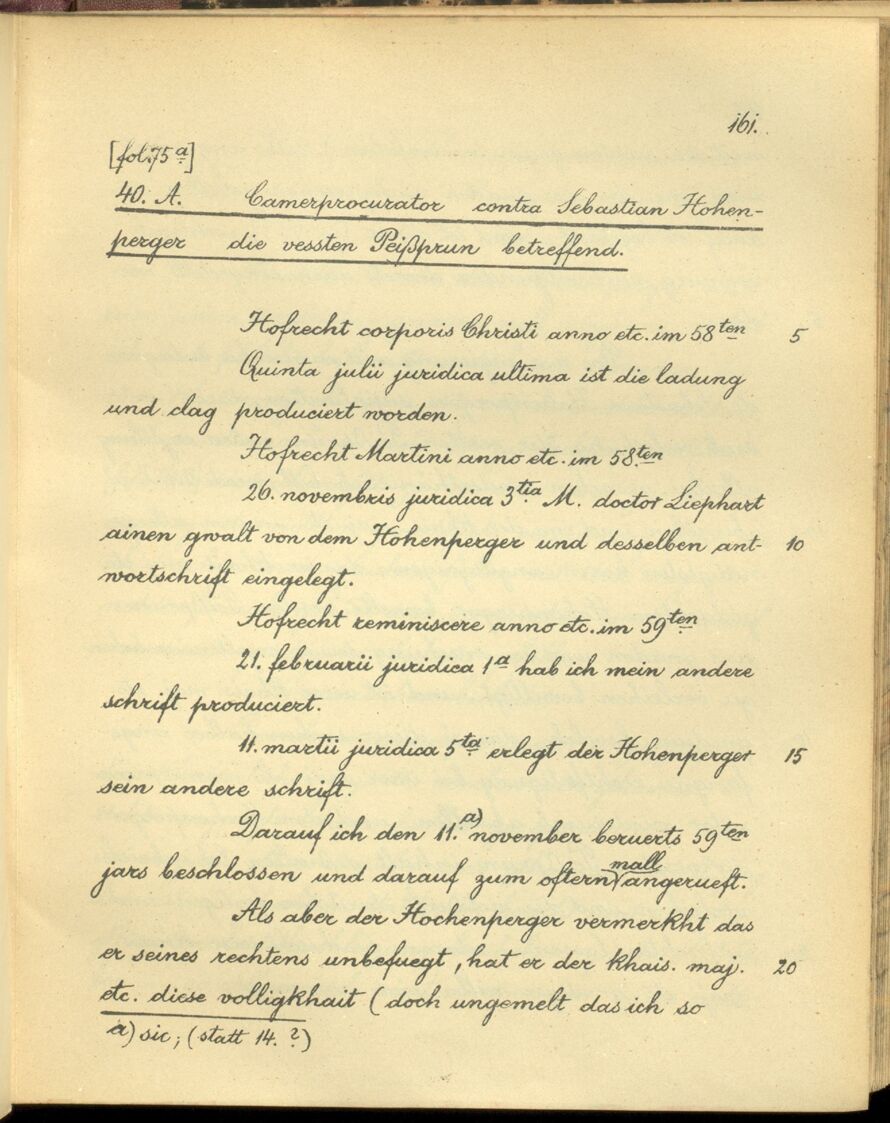 161.
[fol. 75 a]
40. A. Camerprocurator contra Sebastian Hohen-
perger die vessten Peißprun betreffend.
Hofrecht corporis Christi anno etc. im 58ten 5
Quinta julii juridica ultima ist die ladung
und clag produciert worden.
Hofrecht Martini anno etc. im 58.ten
26. novembris juridica 3tia M. doctor Liephart
ainen gwalt von dem Hohenperger und desselben ant- 10
wortschrift eingelegt.
Hofrecht reminiscere anno etc. im 59ten
21. februarii juridica 1a hab ich mein andere
schrift produciert.
11. martii juridica 5ta erlegt der Hohenperger 15
sein andere schrift.
Darauf ich den 11.a) november beruerts 59ten
jars beschlossen und darauf zum oftern mall angerueft.
Als aber der Hochenperger vermerkht das
er seines rechtens unbefuegt, hat er der khais. maj. 20
etc. diese volligkhait (doch ungemelt das ich so
a) sic; (statt 14. ?)